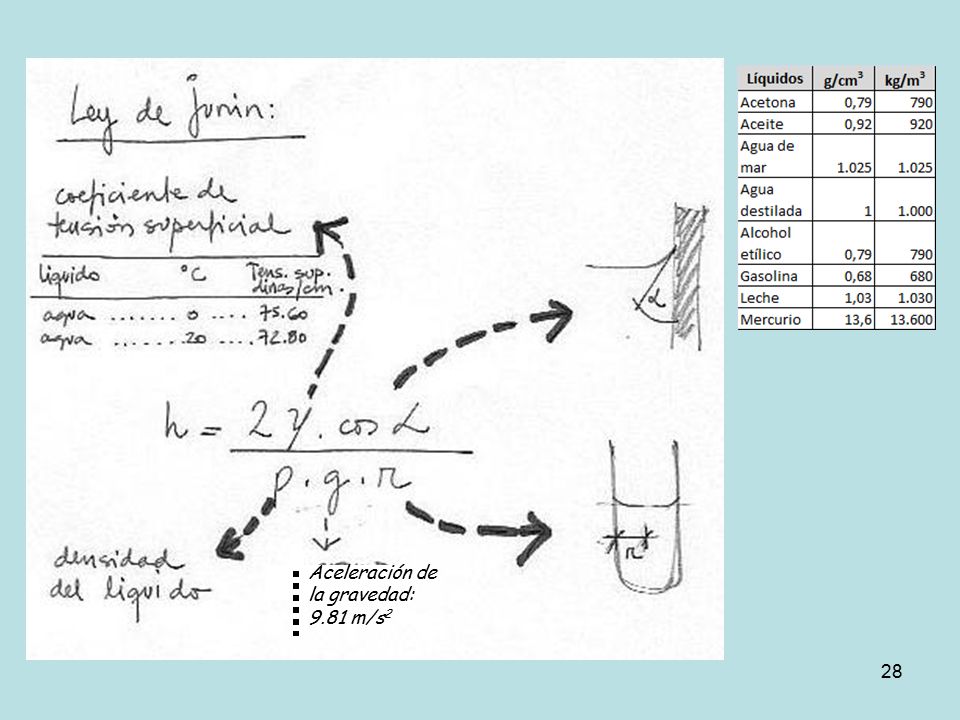 Ley de Jurin:
coeficiente de
tensión superficial
líquido °C Tens. sup.
dinas/cm.
agua ....... 0 .... 75.60
agua ...... 20 .... 72.80
α
h = 2 γ . cos α
ρ . g . r
r
densidad
del líquido
Aceleración de
la gravedad:
9.81 m/s²
Líquidos g/cm³ kg/m³
Acetona 0,79 790
Aceite 0,92 920
Agua de
mar 1.025 1.025
Agua
destilada 1 1.000
Alcohol
etílico 0,79 790
Gasolina 0,68 680
Leche 1,03 1.030
Mercurio 13,6 13.600
28